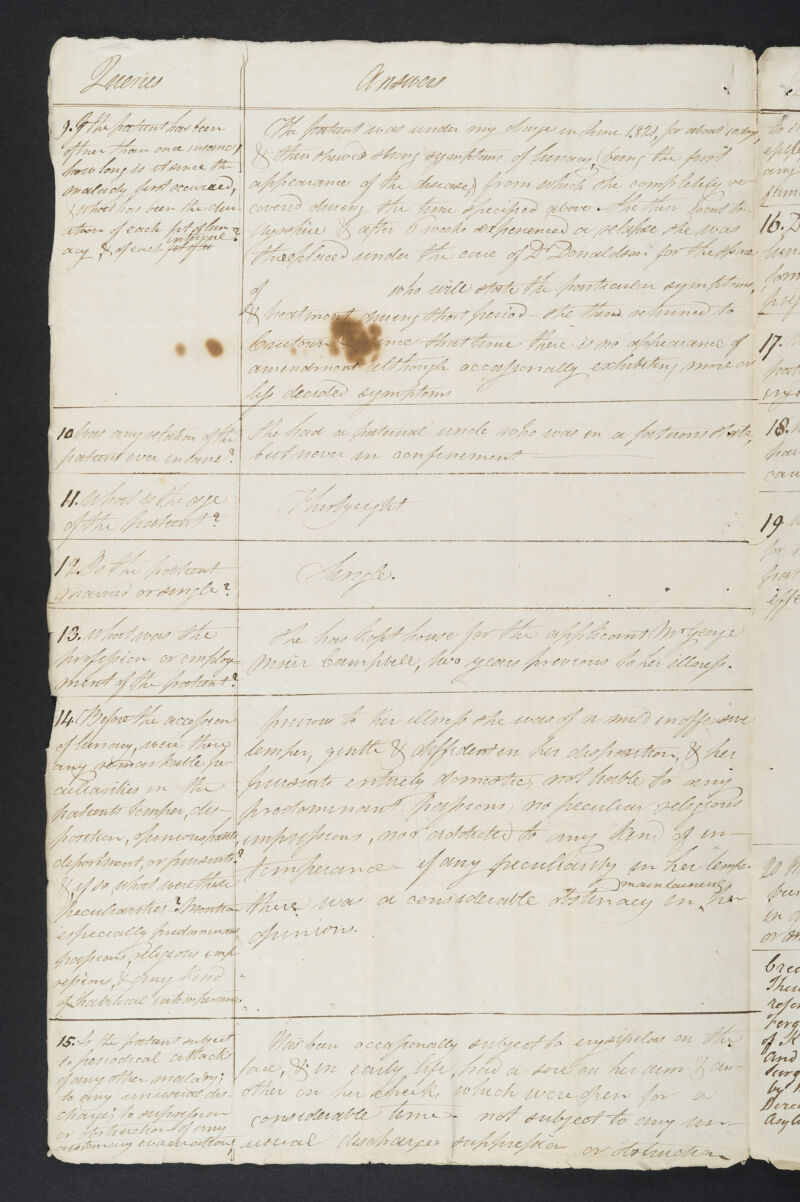 Queries
Answers
9. If the patient has been
other than once insane,
how long is it since the
malady first occurred,
& what has been the dur-
ation of each fit of lun-
acy, & of each interval?
The patient was under my charge in June 1821, for
& then shewed strong symptoms of lunacy, (being the first
appearance of the disease,) from which she completely re-
covered during the time specified above. She then went to
Ayrshire & after 6 weeks experienced a relapse she was
then placed under the care of Dr Donaldson for the space
of who will state the particular symptoms,
& treatment during that period - she then returned to
Creetown since that time there is no appearance of
amendment although occasionally exhibiting more or
less decided symptoms
10 Was any relation of the
patient ever insane?
She had a paternal uncle who was in a fatuous state,
but never in confinement
11. What is the age
of the patient?
Thirtyeight
12. Is the patient
married or single?
Single.
13. What was the
profession or employ-
ment of the patient?
She has kept house for the applicant Mr George
Muir Campbell, two years previous to her illness.
14 Before the accession
of lunacy, were there
any remarkable pe-
culiarities in the
patients temper, dis-
position, opinions,
deportment, or pursuits?
& if so what were these
peculiarities? Mention
especially predominant
passions, religious imp-
ressions, & any kind
of habitual intemperance
previous to her illness she was of a mild inoffensive
temper, gentle & diffident in her disposition, & her
pursuits entirely domestic, not liable to any
predominant Passions, no peculiar religious
impressions, nor addicted to any kind of in-
temperance - if any peculiarity in her temper
there was a considerable obstinacy in maintaining her
opinions.
15. Is the patient subject
to periodical attacks
of any other malady;
to any unusual dis-
charge; to suppression
or obstruction of any
customary evacuation,
Has been occasionally subject to erysipelas on the
face, & in early life, had a sore on her arm & an-
other on her cheek, which were open for a
considerable time - not subject to any un-
usual discharge suppression or obstruction
16.
17.
18.
19
20